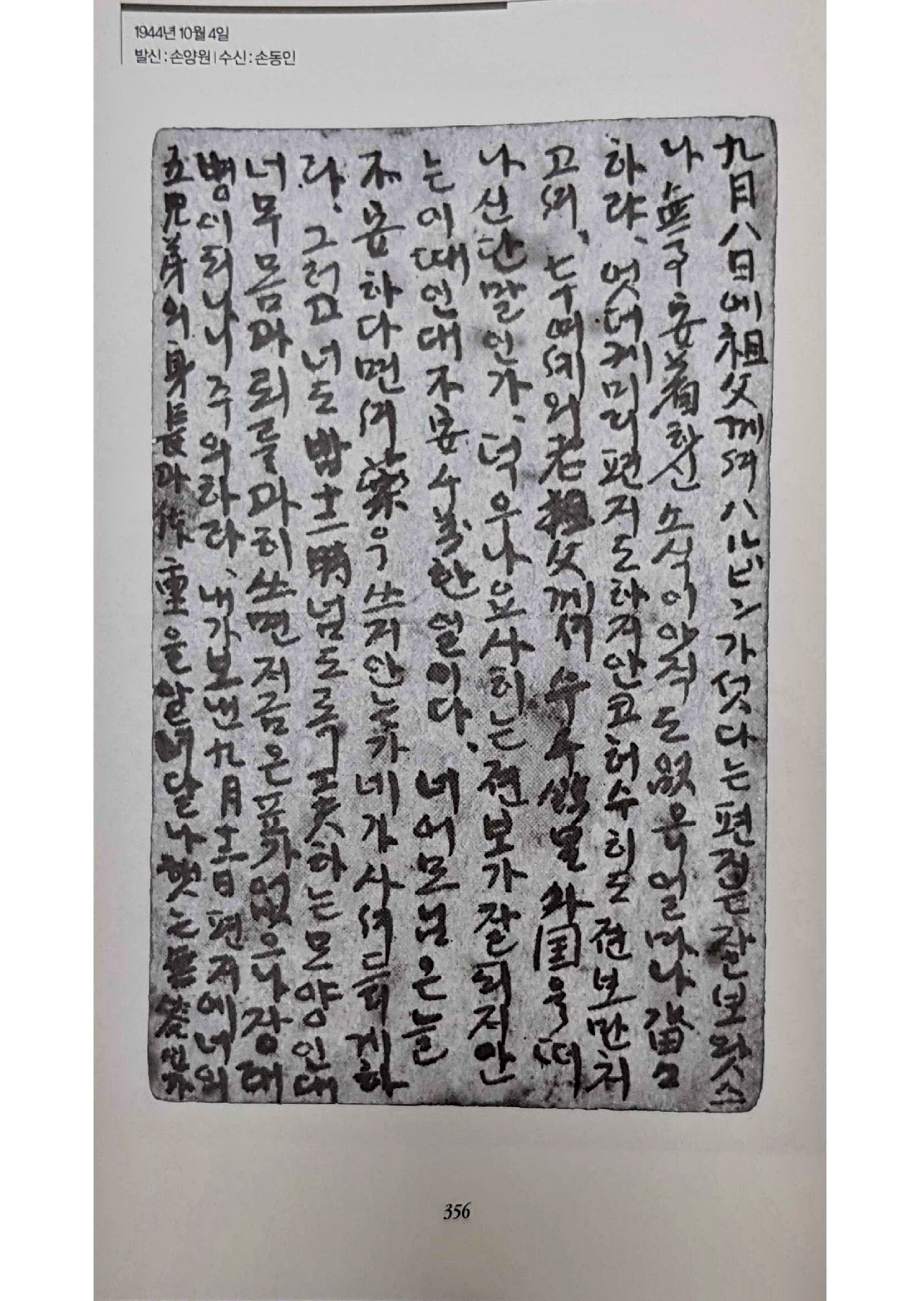 1944년 10월 4일
발신 : 손양원 | 수신 : 손동인
九月八日에 祖父께서 ハルビン가섯다는 편전은 잘 보왓스
나 無事安着하신 소식이 아직도 없음 얼마나 畓々
하랴、엇데케 미리 편지도 하지 안코 허수히도 전보만 처
고서、七十여세의 老祖父께서 우수 말 와国을 떠
나신단 말인가、더우나 요사히는 전보가 잘 되지 안
는 이때인대 不安 수 한 일이다、너 어모님은 늘
不安하다면서 藥을 쓰지 안는가 네가 사서 드리게 하
라、그러고 너도 밤 十二時 넘도록 工夫하는 모양인대
너무 몸과 뢰를 과히 쓰면 저금은 표가 없으나 장래
병이 되나니 주의하라、내가 보낸 九月 日 편지에 너의
五兄弟의 身長과 体重을 알녀달나 햇는 無答인가
356